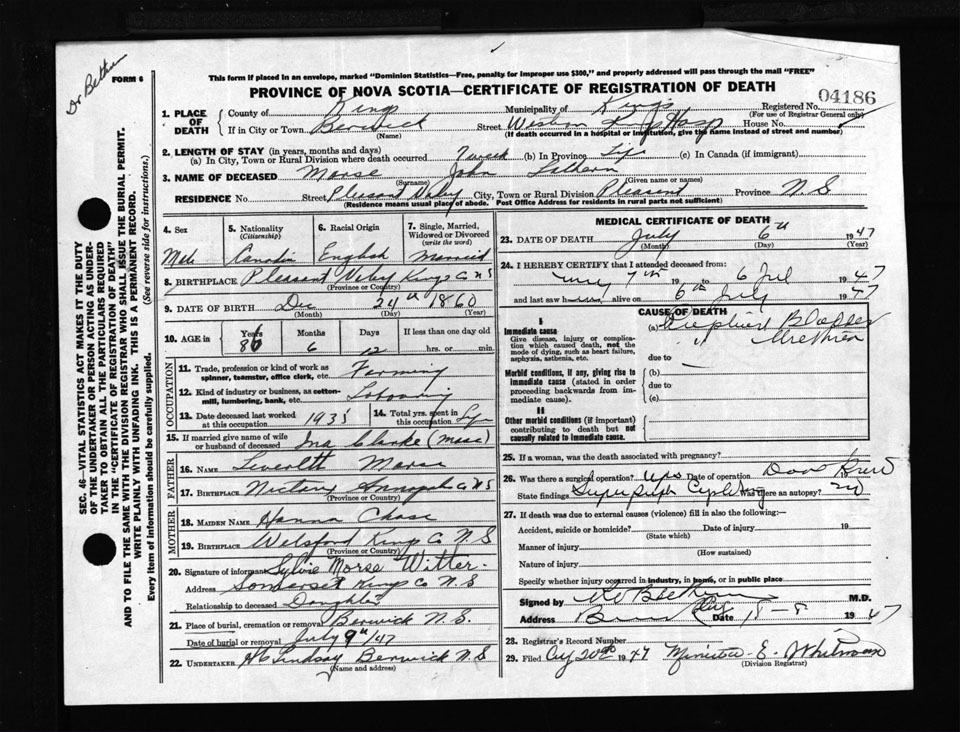 Dr Bethune
FORM 6
This form if placed in an envelope, marked "Dominion Statistics—Free, penalty for improper use $300," and properly addressed will pass through the mail "FREE"
PROVINCE OF NOVA SCOTIA—CERTIFICATE OF REGISTRATION OF DEATH
04186
1. PLACE OF DEATH County of Kings Municipality of Kings Registered No.
(For use of Registrar General only)
If in City or Town Berwick Street Western Kings Hosp House No.
(Name) (If death occurred in a hospital or institution, give the name instead of street and number)
2. LENGTH OF STAY (in years, months and days)
(a) In City, Town or Rural Division where death occurred (b) In Province Life (c) In Canada (if immigrant)
3. NAME OF DECEASED Morse John
(Surname) (Given name or names)
RESIDENCE No. Street Pleasant Valley City, Town or Rural Division Pleasant Province N.S
(Residence means usual place of abode. Post Office Address for residents in rural parts not sufficient)
4. Sex 5. Nationality (Citizenship) 6. Racial Origin 7. Single, Married, Widowed or Divorced (write the word)
Male Canadian English Married
8. BIRTHPLACE Pleasant Valley Kings Co N S
(Province or Country)
9. DATE OF BIRTH Dec 24th 1860
(Month) (Day) (Year)
10. AGE in Years Months Days If less than one day old
86 6 12 hrs. or min.
OCCUPATION
11. Trade, profession or kind of work as spinner, teamster, office clerk, etc. Farming
12. Kind of industry or business, as cotton-mill, lumbering, bank, etc.
13. Date deceased last worked at this occupation 1935 14. Total yrs. spent in this occupation Life
15. If married give name of wife or husband of deceased Ina Clarke (Morse)
FATHER
16. Name Leverett Morse
17. Birthplace Nictaux Annapolis Co N S
(Province or Country)
MOTHER
18. Maiden Name Hanna Chase
19. Birthplace Welsford Kings Co N.S
(Province or Country)
20. Signature of informant Sylvie Morse Witter
Address Somerset Kings Co N.S
Relationship to deceased Daughter
21. Place of burial, cremation or removal Berwick N.S.
Date of burial or removal July 9th/47
22. UNDERTAKER Lindsay Berwick N.S
(Name and address)
MEDICAL CERTIFICATE OF DEATH
23. DATE OF DEATH July 6th 1947
(Month) (Day) (Year)
24. I HEREBY CERTIFY that I attended deceased from:
7th to 6 Jul 1947
and last saw h alive on 6th July 1947
CAUSE OF DEATH
I
Immediate cause
Give disease, injury or complication which caused death, not the mode of dying, such as heart failure, asphyxia, asthenia, etc.
(a)
due to
Morbid conditions, if any, giving rise to immediate cause (stated in order proceeding backwards from immediate cause).
(b)
due to
(c)
II
Other morbid conditions (if important) contributing to death but not causally related to immediate cause.
25. If a woman, was the death associated with pregnancy?
26. Was there a surgical operation? Yes Date of operation 19
State findings Was there an autopsy? no
27. If death was due to external causes (violence) fill in also the following:—
Accident, suicide or homicide? Date of injury 19
(State which)
Manner of injury
(How sustained)
Nature of injury
Specify whether injury occurred in industry, in home, or in public place
Signed by M.D.
Address Date 18-8 1947
28. Registrar's Record Number
29. Filed Aug 20th 1947 E. Whitman
(Division Registrar)
SEC. 46—VITAL STATISTICS ACT MAKES IT THE DUTY
OF THE UNDERTAKER OR PERSON ACTING AS UNDER-
TAKER TO OBTAIN ALL THE PARTICULARS REQUIRED
IN THE "CERTIFICATE OF REGISTRATION OF DEATH"
AND TO FILE THE SAME WITH THE DIVISION REGISTRAR WHO SHALL ISSUE THE BURIAL PERMIT.
WRITE PLAINLY WITH UNFADING INK. THIS IS A PERMANENT RECORD.
Every item of information should be carefully supplied. (See reverse side for instructions.)